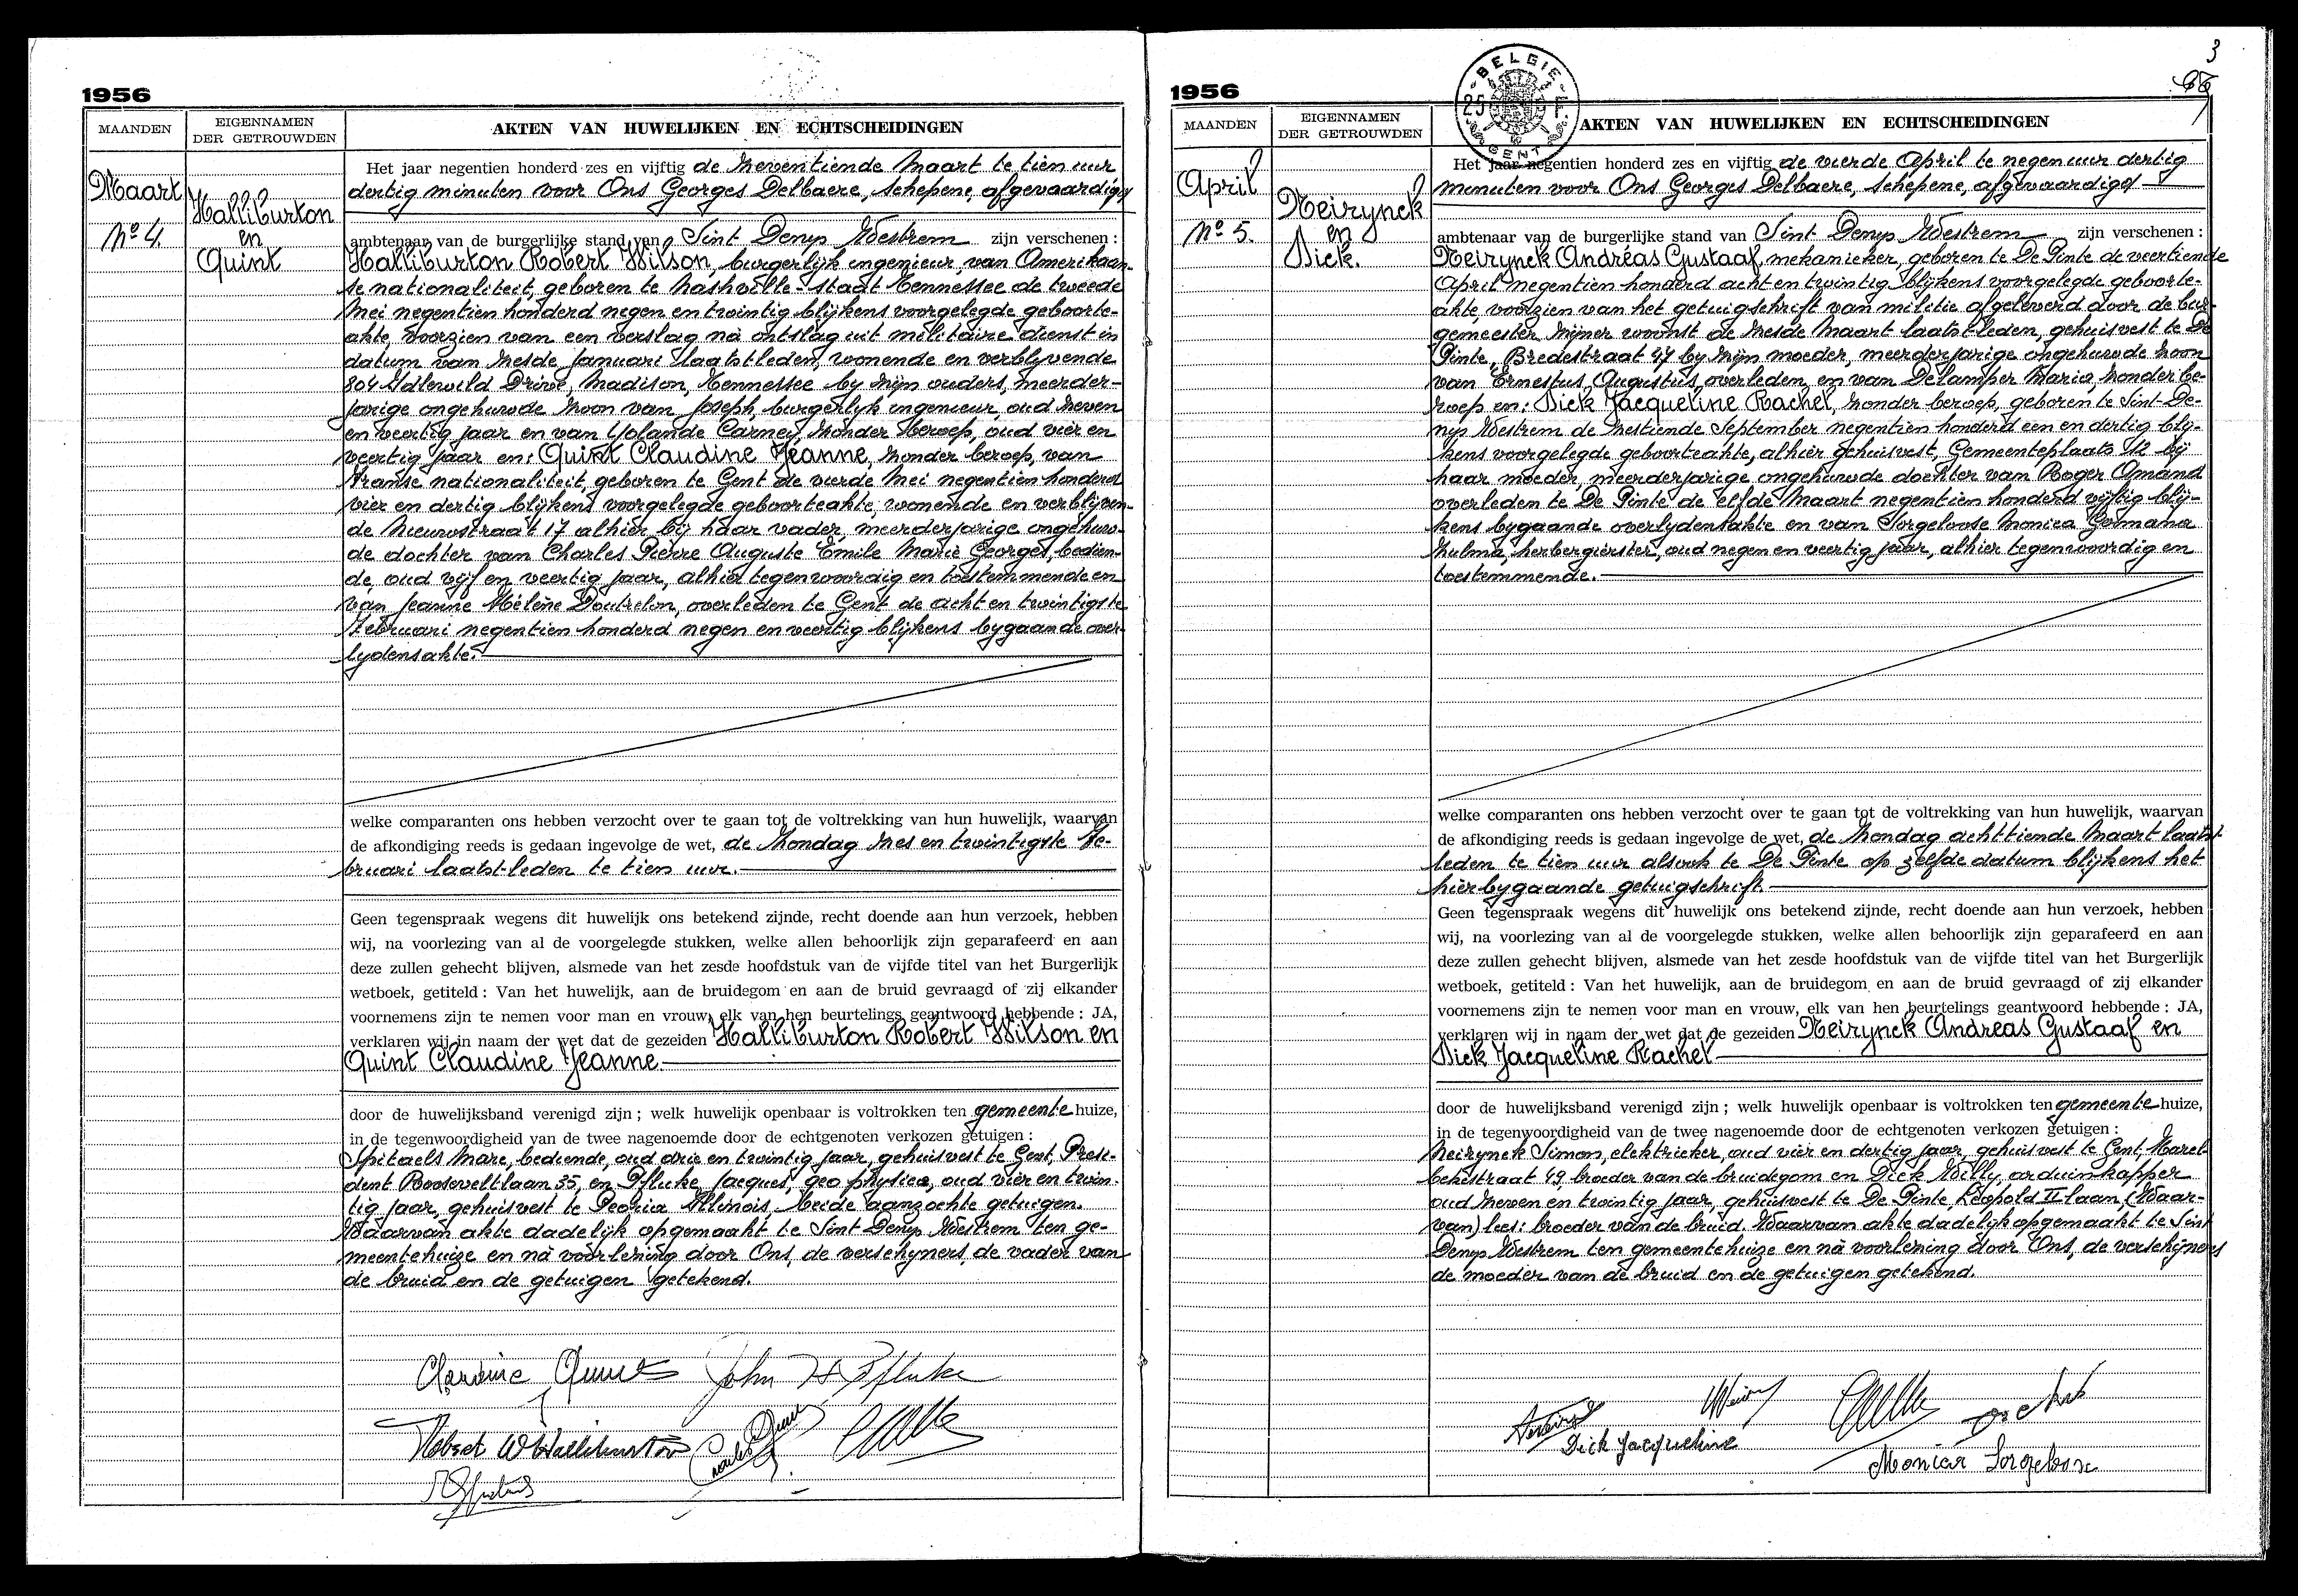 1956
MAANDEN
EIGENNAMEN
DER GETROUWDEN
AKTEN VAN HUWELIJKEN EN ECHTSCHEIDINGEN
Maart
No 4.
Halliburton
en
Quint
Het jaar negentien honderd zes en vijftig de zeventiende Maart te tien uur
dertig minuten voor Ons Georges Delbaere, schepene, afgevaardigd
ambtenaar van de burgerlijke stand van Sint Denys Westrem zijn verschenen :
Halliburton Robert Wilson, burgerlijk ingenieur, van Amerikaan-
se nationaliteit, geboren te Nashville-Staat Tennessee de tweede
Mei negentien honderd negen en twintig blijkens voorgelegde geboorte-
akte, voorzien van een verslag nà ontslag uit militaire dienst in
datum van zesde Januari laatstleden, wonende en verblyvende
804 Idlewild Drive, Madison, Tennessee by zijn ouders, meerder-
jarige ongehuwde zoon van Joseph, burgerlyk ingenieur, oud zeven
en veertig jaar en van Yolande Carney, zonder beroep, oud vier en
veertig jaar en: Quint Claudine Jeanne, zonder beroep, van
Franse nationaliteit, geboren te Gent de vierde Mei negentien honderd
vier en dertig blijkens voorgelegde geboorteakte, wonende en verblijven-
de Nieuwstraat 17 alhier bij haar vader, meerderjarige ongehuw-
de dochter van Charles Pierre Auguste Emile Marie Georges, bedien-
de, oud vijf en veertig jaar, alhier tegenwoordig en toestemmende en
van Jeanne Hélène Doutrelon, overleden te Gent de acht en twintigste
Februari negentien honderd negen en veertig blijkens bygaande over-
lydensakte.
welke comparanten ons hebben verzocht over te gaan tot de voltrekking van hun huwelijk, waarvan
de afkondiging reeds is gedaan ingevolge de wet, de Zondag zes en twintigste Fe-
bruari laatst-leden te tien uur.
Geen tegenspraak wegens dit huwelijk ons betekend zijnde, recht doende aan hun verzoek, hebben
wij, na voorlezing van al de voorgelegde stukken, welke allen behoorlijk zijn geparafeerd en aan
deze zullen gehecht blijven, alsmede van het zesde hoofdstuk van de vijfde titel van het Burgerlijk
wetboek, getiteld : Van het huwelijk, aan de bruidegom en aan de bruid gevraagd of zij elkander
voornemens zijn te nemen voor man en vrouw, elk van hen beurtelings geantwoord hebbende : JA,
verklaren wij in naam der wet dat de gezeiden Halliburton Robert Wilson en
Quint Claudine Jeanne.
door de huwelijksband verenigd zijn ; welk huwelijk openbaar is voltrokken ten gemeente huize,
in de tegenwoordigheid van de twee nagenoemde door de echtgenoten verkozen getuigen :
Spitaels Marc, bediende, oud drie en twintig jaar, gehuisvest te Gent, Presi-
dent Rooseveltlaan 35, en Pfluke Jacques, geo physica, oud vier en twin-
tig jaar, gehuisvest te Peoria Illinois, beide aanzochte getuigen.
Waarvan akte dadelijk opgemaakt te Sint Denys Westrem ten ge-
meentehuize en nà voorlezing door Ons, de verschyners, de vader van
de bruid en de getuigen getekend.
Claudine Quint John H Pfluke
Robert W Halliburton
1956
3
MAANDEN
EIGENNAMEN
DER GETROUWDEN
BELGIE
25 F
GENT
AKTEN VAN HUWELIJKEN EN ECHTSCHEIDINGEN
April
No 5.
Neirynck
en
Dick.
Het jaar negentien honderd zes en vijftig de vierde April te negen uur dertig
minuten voor Ons Georges Delbaere, schepene, afgevaardigd
ambtenaar van de burgerlijke stand van Sint Denys Westrem zijn verschenen :
Neirynck Andréas Gustaaf, mekanieker, geboren te De Pinte de veertiende
April negentien honderd acht en twintig blijkens voorgelegde geboorte-
akte, voorzien van het getuigschrift van militie afgeleverd door de bur-
gemeester zijner woonst de zesde Maart laatst-leden, gehuisvest te De
Pinte, Bredestraat 27 by zijn moeder, meerderjarige ongehuwde zoon
van Ernestus Augustus, overleden, en van Delamper Maria, zonder be-
roep en: Dick Jacqueline Rachel, zonder beroep, geboren te Sint-De-
nys Westrem de zestiende September negentien honderd een en dertig bly-
kens voorgelegde geboorteakte, alhier gehuisvest, Gemeenteplaats 12 bij
haar moeder, meerderjarige ongehuwde dochter van Roger Omand
overleden te De Pinte de elfde Maart negentien honderd vijftig blij-
kens bygaande overlydensakte en van Sorgeloose Monica Germana
Zulma, herbergierster, oud negen en veertig jaar, alhier tegenwoordig en
toestemmende.
welke comparanten ons hebben verzocht over te gaan tot de voltrekking van hun huwelijk, waarvan
de afkondiging reeds is gedaan ingevolge de wet, de Zondag achttiende Maart laatst
leden te tien uur alsook te De Pinte op zelfde datum blijkens het
hierbygaande getuigschrift.
Geen tegenspraak wegens dit huwelijk ons betekend zijnde, recht doende aan hun verzoek, hebben
wij, na voorlezing van al de voorgelegde stukken, welke allen behoorlijk zijn geparafeerd en aan
deze zullen gehecht blijven, alsmede van het zesde hoofdstuk van de vijfde titel van het Burgerlijk
wetboek, getiteld : Van het huwelijk, aan de bruidegom en aan de bruid gevraagd of zij elkander
voornemens zijn te nemen voor man en vrouw, elk van hen beurtelings geantwoord hebbende : JA,
verklaren wij in naam der wet dat de gezeiden Neirynck Andreas Gustaaf en
Dick Jacqueline Rachel
door de huwelijksband verenigd zijn ; welk huwelijk openbaar is voltrokken ten gemeente huize,
in de tegenwoordigheid van de twee nagenoemde door de echtgenoten verkozen getuigen :
Neirynck Simon, elektrieker, oud vier en dertig jaar, gehuisvest te Gent, Marel-
bekestraat 49, broeder van de bruidegom en Dick Willy, arduinkapper
oud zeven en twintig jaar, gehuisvest te De Pinte, Léopold II laan (Waar-
van) lees: broeder van de bruid. Waarvan akte dadelyk opgemaakt te Sint
Denys Westrem ten gemeentehuize en nà voorlezing door Ons, de verschijners
de moeder van de bruid en de getuigen getekend.
Dick Jacqueline
Monica Sorgeloose